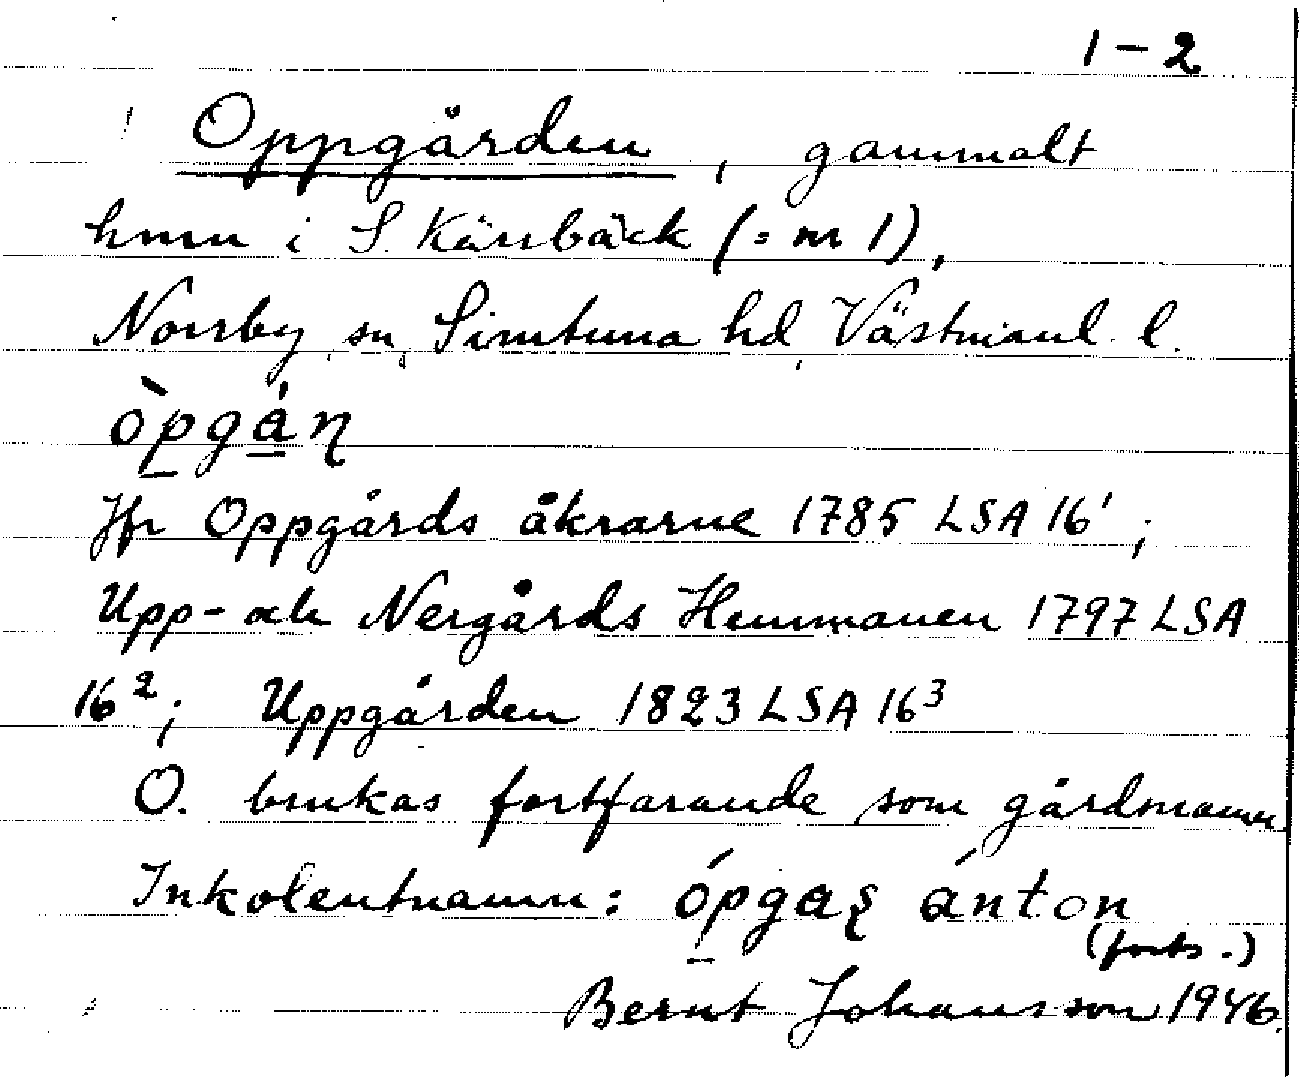 1-2
Oppgården, gammalt
hmn i S. Kärrbäck (= nr 1),
Norrby sn, Simtuna hd, Västmanl. l.
òpgáɳ
Jfr Oppgårds åkrarne 1785 LSA 16¹;
Upp- och Nergårds Hemmanen 1797 LSA
16²; Uppgården 1823 LSA 16³
O. brukas fortfarande som gårdnamn
Inkolentnamn: ópgaʂ ánton
(forts.)
Bernt Johansson 1946.